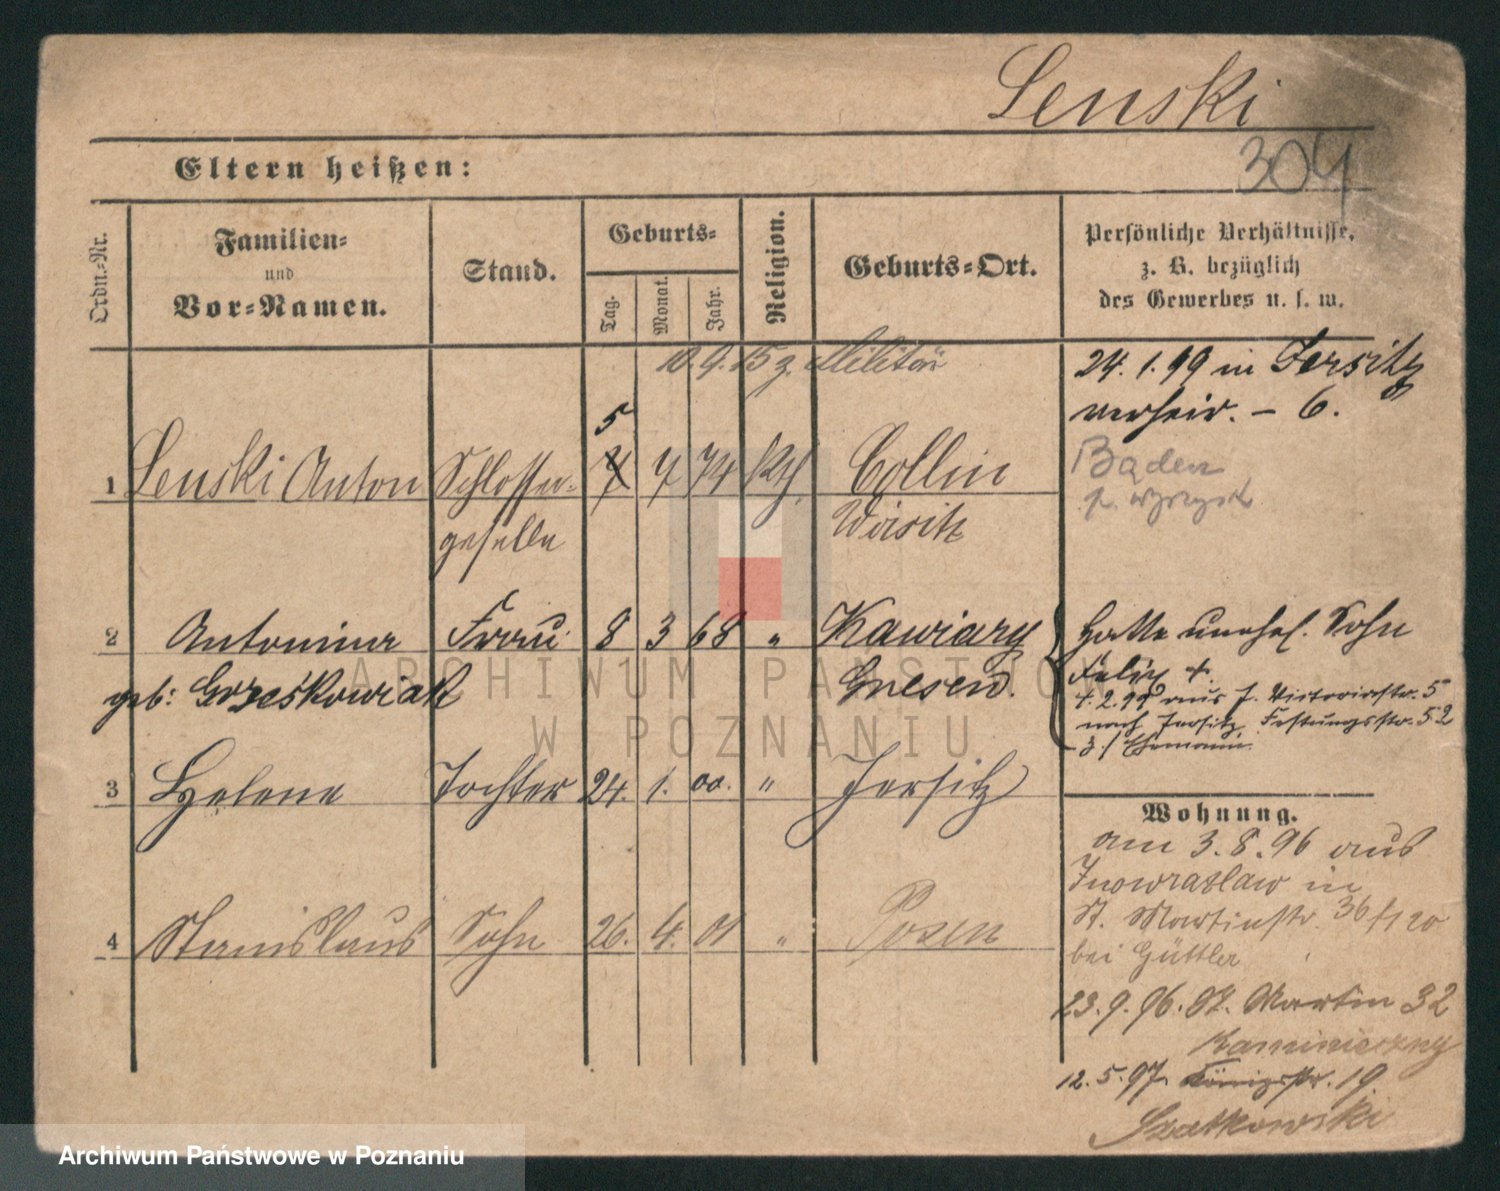 Lenski
304
Eltern heißen:
Ordn.-Nr.
Familien-
und
Vor-Namen.
Stand.
Geburts-
Tag.
Monat.
Jahr.
Religion.
Geburts-Ort.
Persönliche Verhältnisse,
z. B. bezüglich
des Gewerbes u. s. w.
10.9.15 z. Militär
24.1.99 in Jersitz
verheir. – 6.
5
1 Lenski Anton Schlosser- 7 7 74 kth. Collin
geselle Wirsitz
Baden
p. Wyrzysk
2 Antonina Frau 8 3 68 " Kawiary
geb: Grzeskowiak Gnesen.
hatte unehel. Sohn
Felix +.
4.2.99 aus J. Victoriastr. 5
nach Jersitz, Festungsstr. 52
z./ Ehemann.
3 Helene Tochter 24. 1. 00. " Jersitz
4 Stanislaus Sohn 26. 4. 01 " Posen
Wohnung.
am 3.8.96 aus
Inowrazlaw in
St. Martinstr. 36
bei Güttler
23.9.96. St. Martin 32
Kaminieczny
12.5.97. Königsstr. 19
Szatkowski
ARCHIWUM PAŃSTWOWE
W POZNANIU
Archiwum Państwowe w Poznaniu